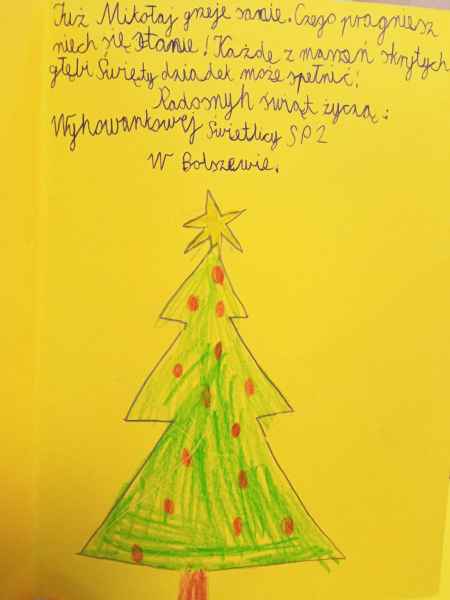 Już Mikołaj grzeje sanie. Czego pragniesz
niech się stanie! Każde z marzeń skrytych
głębi Święty dziadek może spełnić!
Radosnyh świąt życzą:
Wyhowankowej świetlicy SP2
W Bolszewie.